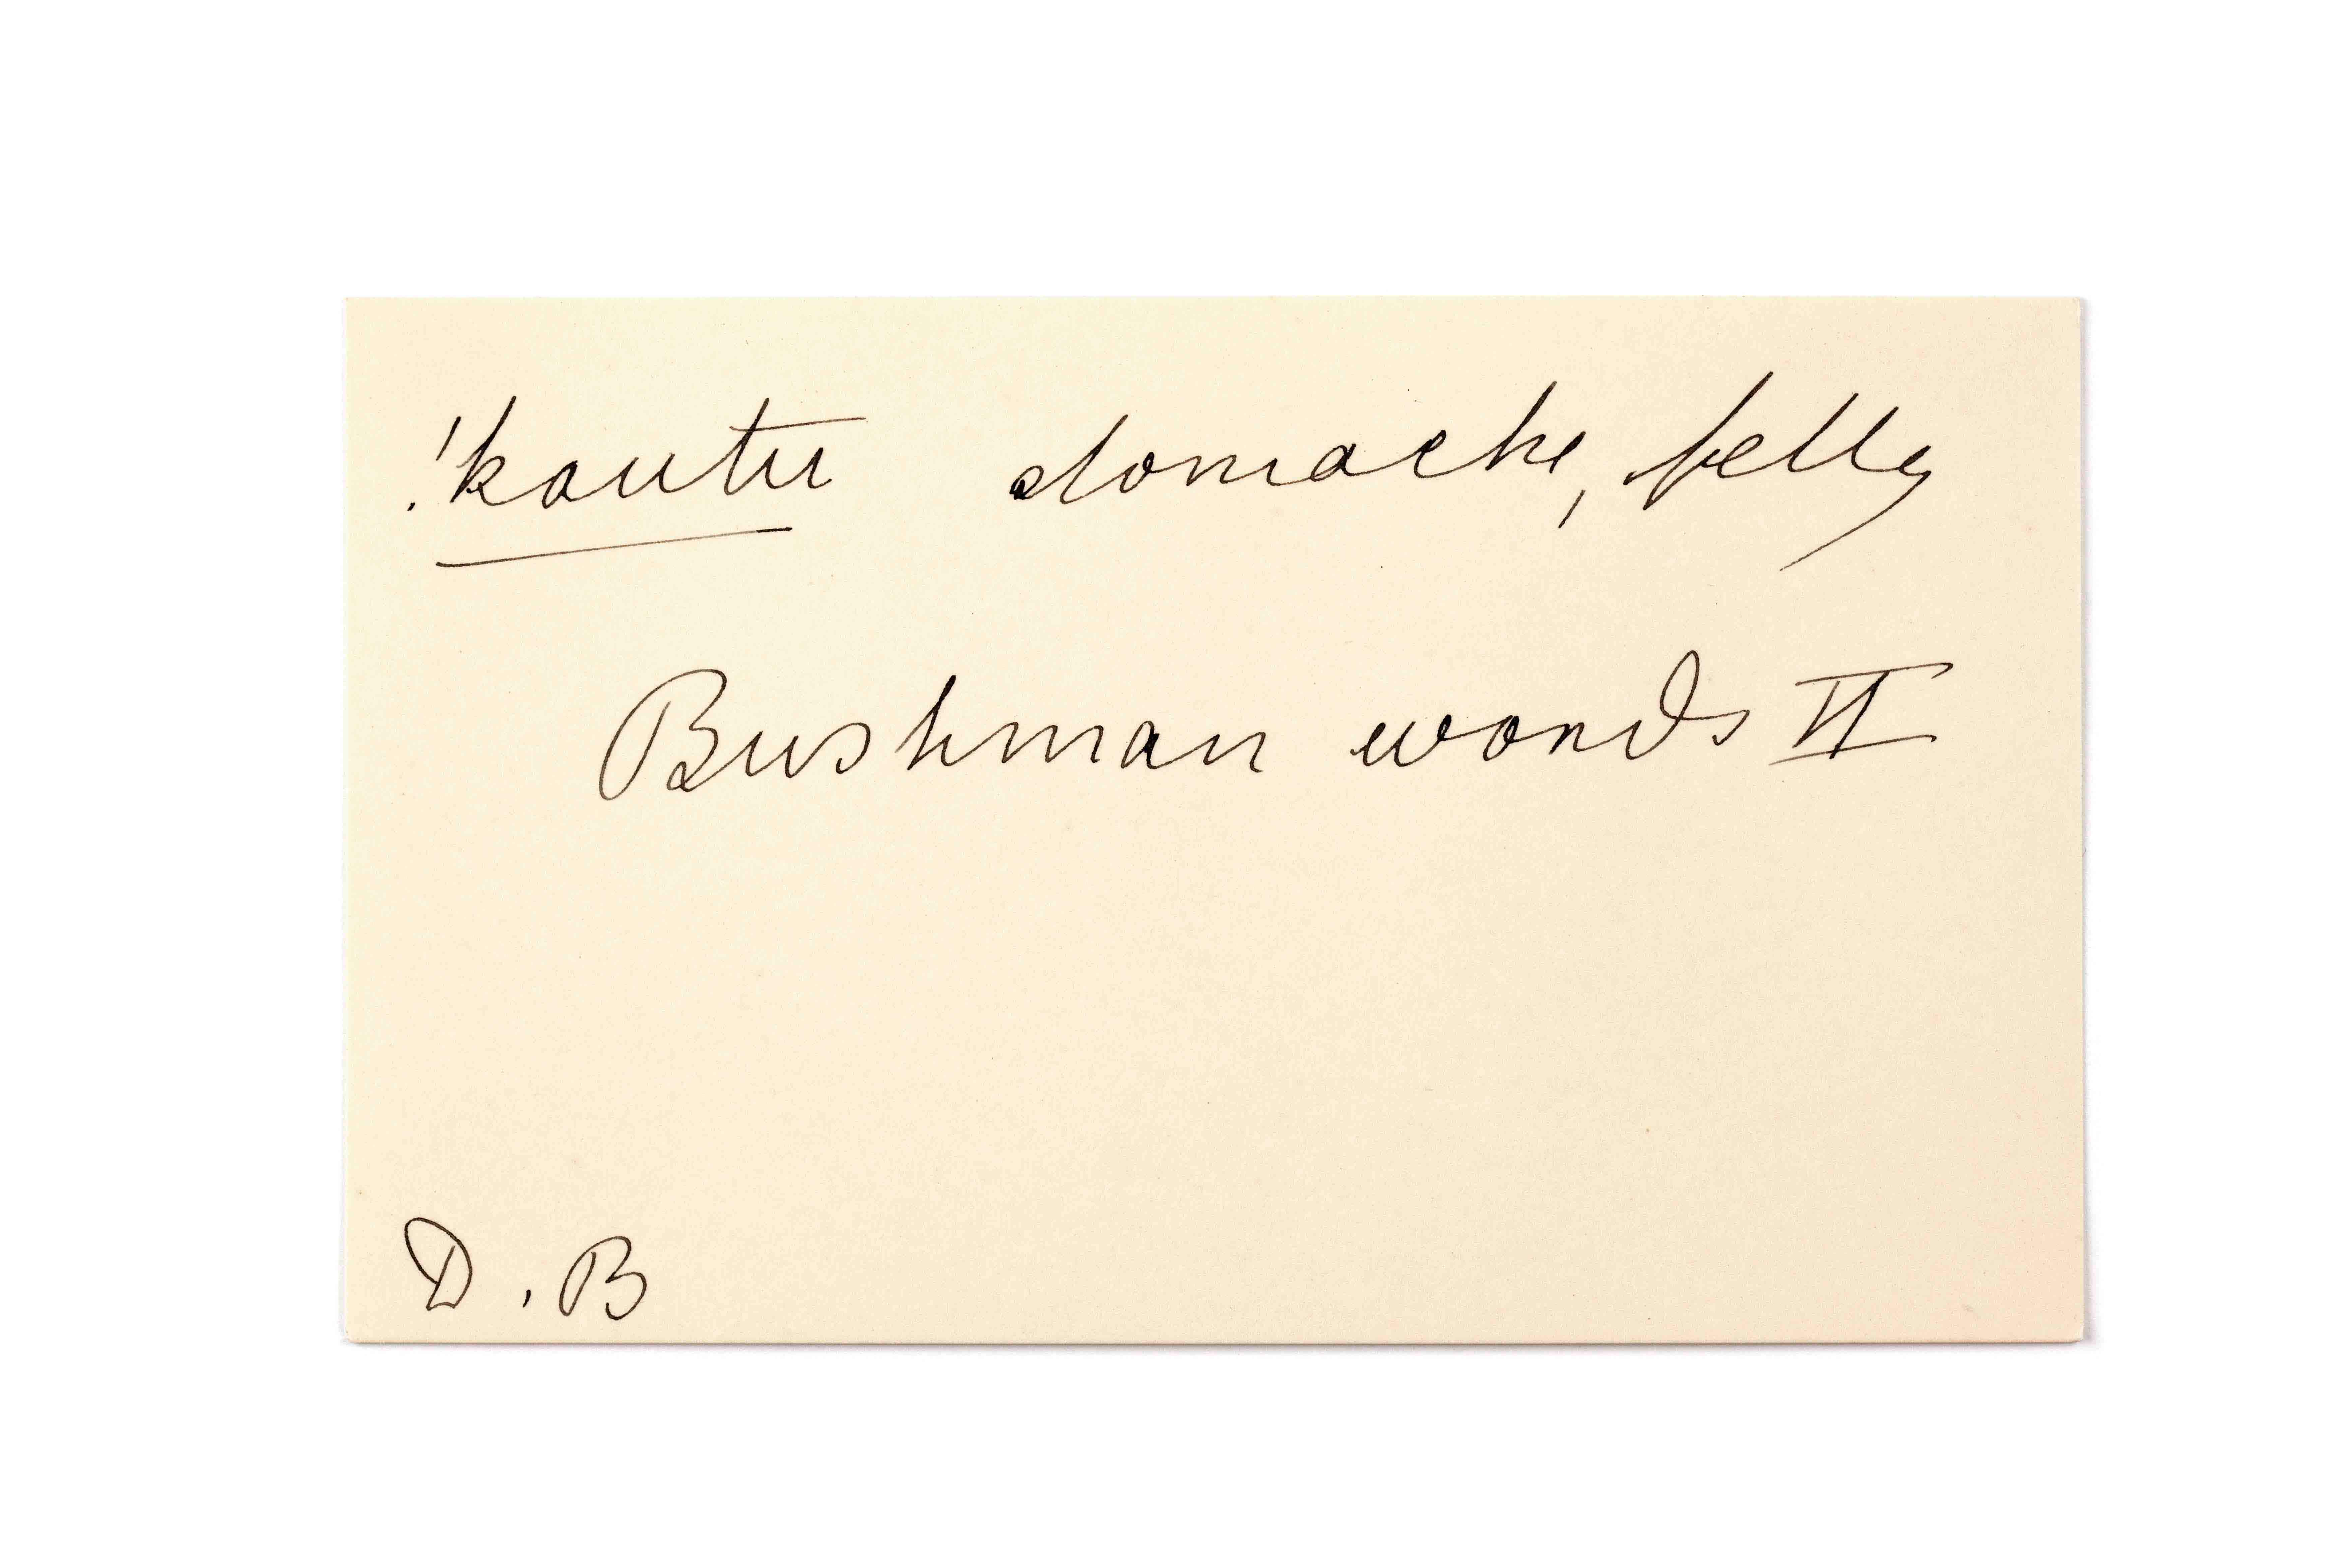 !kautu stomache, belly
Bushman words II
D. B